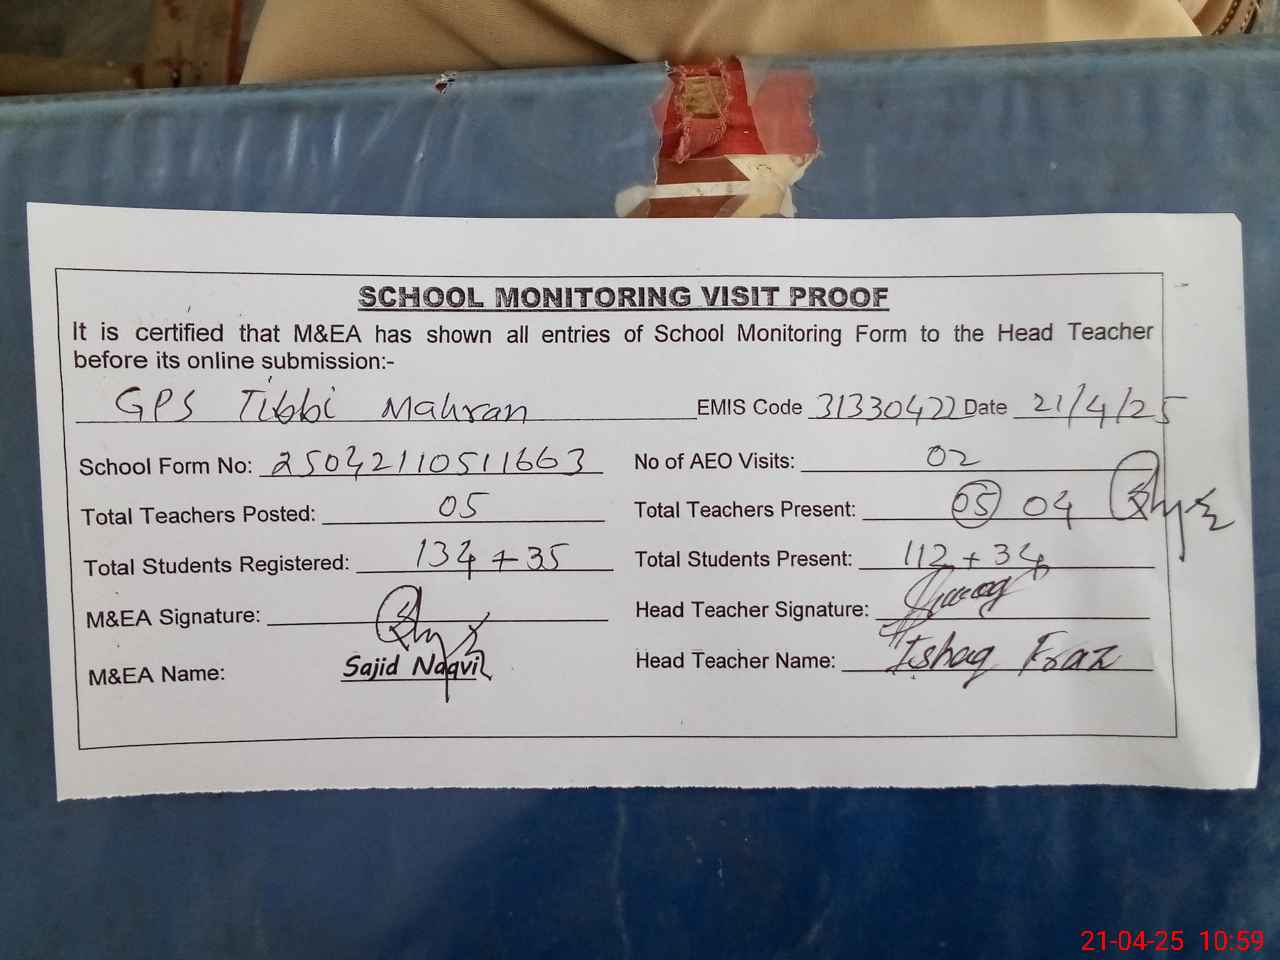 SCHOOL MONITORING VISIT PROOF
It is certified that M&EA has shown all entries of School Monitoring Form to the Head Teacher
before its online submission:-
GPS Tibbi Mahran EMIS Code 31330422 Date 21/4/25
School Form No: 25042110511663 No of AEO Visits: 02
Total Teachers Posted: 05 Total Teachers Present: 05 04
Total Students Registered: 134 + 35 Total Students Present: 112 + 34
M&EA Signature: Head Teacher Signature:
M&EA Name: Sajid Naqvi Head Teacher Name: Ishaq Fraz
21-04-25 10:59